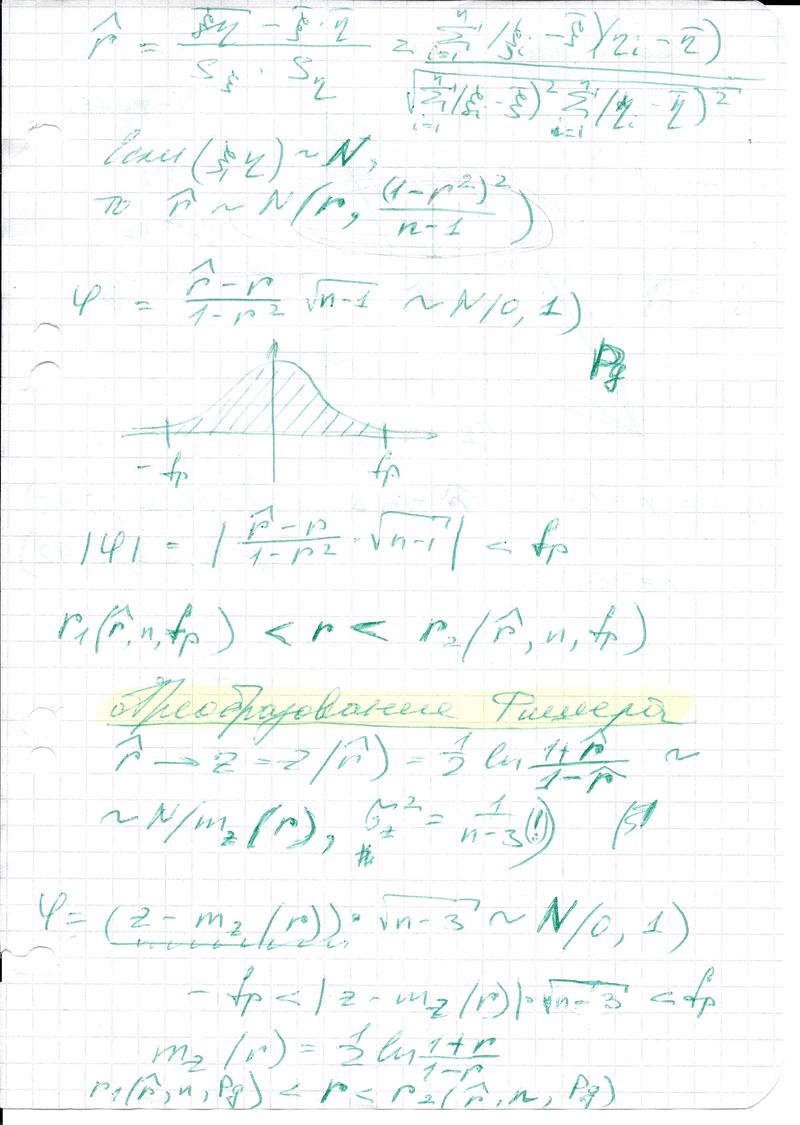 r̂ = (ξη‾ - ξ̄·η̄)/(S_ξ · S_η) = Σ_{i=1}^{n} (ξ_i - ξ̄)(η_i - η̄) / √(Σ_{i=1}^{n} (ξ_i - ξ̄)² Σ_{i=1}^{n} (η_i - η̄)²)
Если (ξ, η) ~ N,
то r̂ ~ N(r, (1-r²)²/(n-1))
φ = (r̂ - r)/(1-r²) √(n-1) ~ N(0, 1)
Pg
-fp fp
|φ| = |(r̂ - r)/(1-r²) · √(n-1)| < fp
r₁(r̂, n, fp) < r < r₂(r̂, n, fp)
Преобразование Фишера
r̂ → z = z(r̂) = ½ ln (1+r̂)/(1-r̂) ~
~ N(m_z(r), σ_z² = 1/(n-3)(!))
φ = (z - m_z(r)) · √(n-3) ~ N(0, 1)
- fp < (z - m_z(r)) · √(n-3) < fp
m_z(r) = ½ ln (1+r)/(1-r)
r₁(r̂, n, Pg) < r < r₂(r̂, n, Pg)